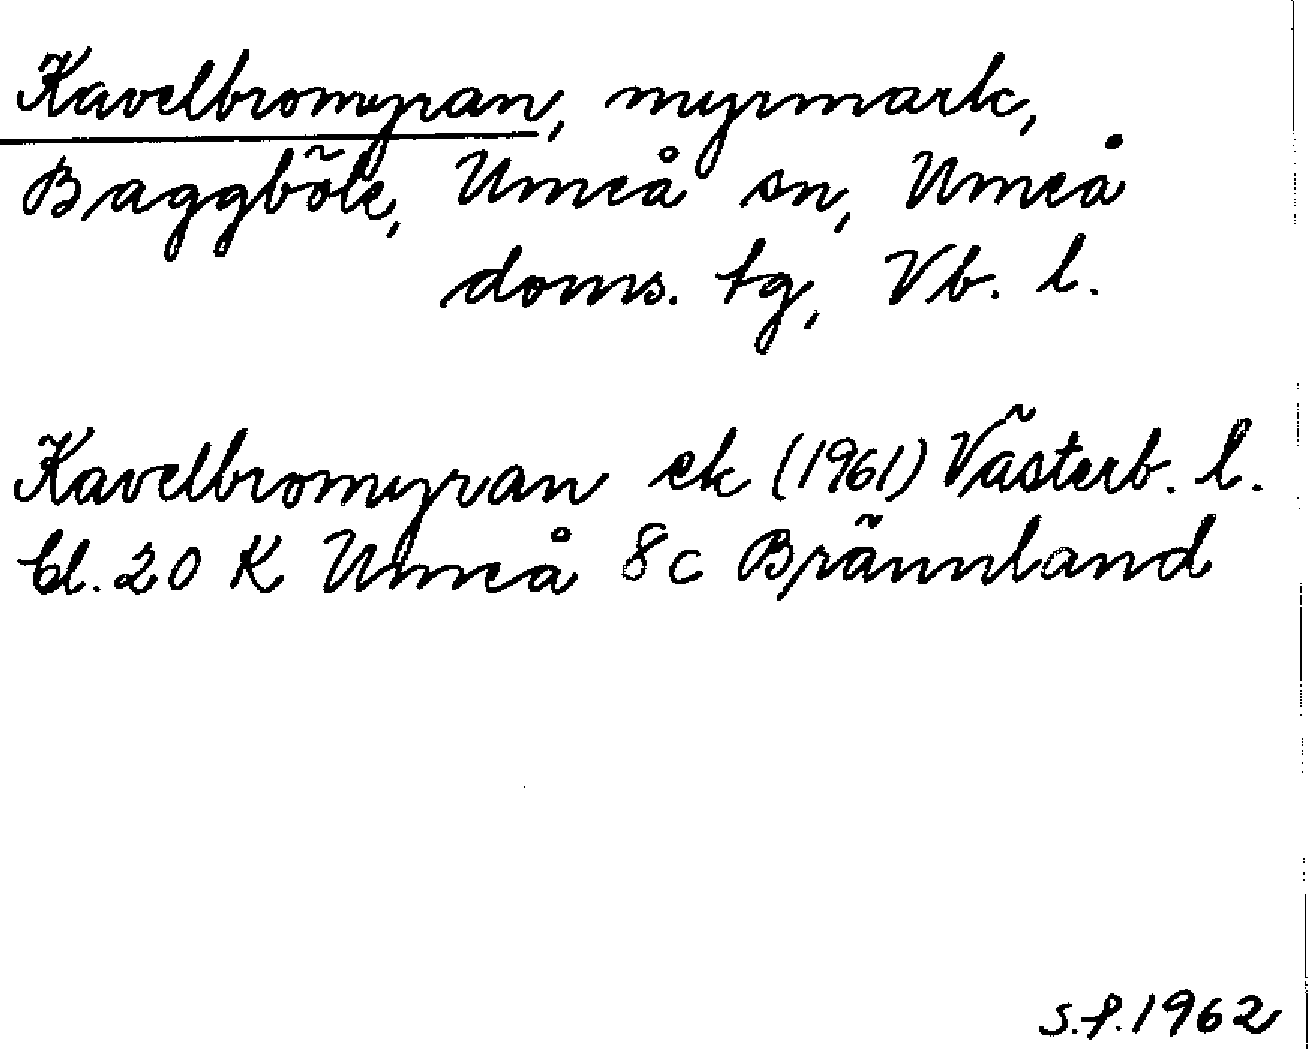 Kavelbromyran, myrmark,
Baggböle, Umeå sn, Umeå
doms. tg, Vb. l.
Kavelbromyran ek (1961) Västerb. l.
bl. 20 K Umeå 8c Brännland
S.f. 1962